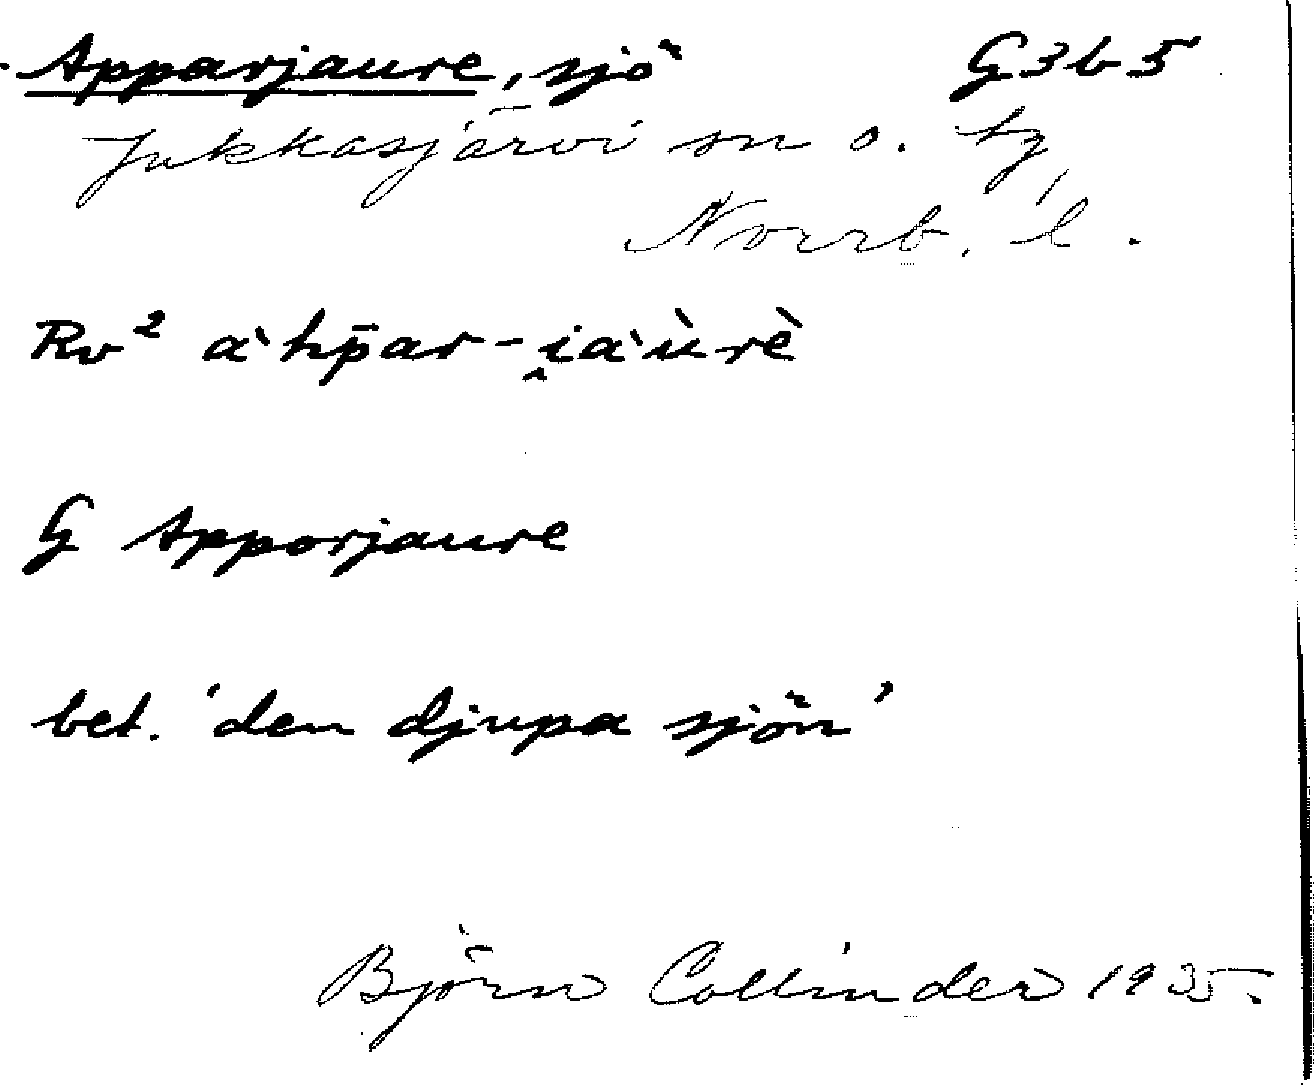 Apparjaure, sjö G3b5
Jukkasjärvi sn o. tg,
Norrb. l.
Rv² àhp̄ar-i̯àùrè
G Apporjaure
bet. 'den djupa sjön'
Björn Collinder 1935.